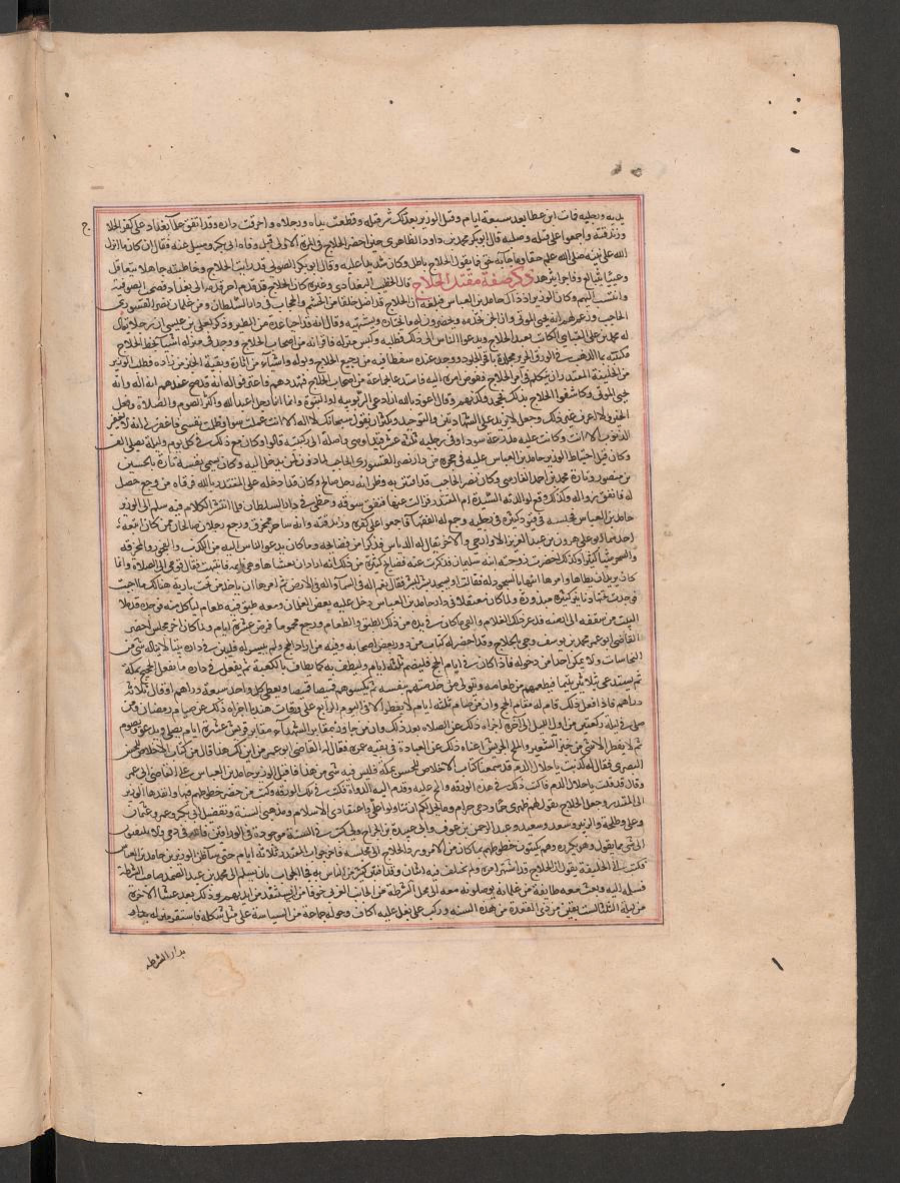 يديه ورجليه فمات ابن عطا بعد سبعة ايام وقتل الوزير بعد ذلك شر قتلة وقطعت يداه ورجلاه واحرقت داره وقد اتفق علما بغداد على كفر الحلاج
وزندقته واجمعوا على قتله وصلبه قال ابو بكر محمد بن داود الظاهرى حين احضر الحلاج فى المرة الاولى قبل وفاة ابى بكر وسيل عنه فقال ان كان ما انزل
الله على نبيه صلى الله عليه حقا وما جا به حق فما يقول الحلاج باطل وكان شديدا عليه وقال ابو بكر الصولى قد رايت الحلاج وخاطبته فرايته جاهلا يتعاقل
وغبيا يتبالغ وفاجرا يتزهد ذكر صفة مقتل الحلاج قال الخطيب البغدادى وغيره كان الحلاج قد قدم اخر قدمة الى بغداد فصحب الصوفية
وانتسب اليهم وكان الوزير اذ ذاك حامد بن العباس فبلغه ان الحلاج قد اضل خلقا من الحشم والحجاب فى دار السلطان ومن غلمان نصر القسورى
الحاجب وزعم لهم انه يحيى الموتى وان الجن تخدمه ويحضرون له ما يختاره ويشتهيه وقال انه قد احيا عدة من الطير وذكر لعلى بن عيسى ان رجلا يقال
له محمد بن على القناى الكاتب يعبد الحلاج ويدعوا الناس الى ذلك فطلبه وكبس منزله فاقر انه من اصحاب الحلاج ووجد فى منزله اشيا بخط الحلاج
مكتتبة بماالذهب فى الورق الحرير مجلدة بافخر الجلود ووجد عنده سفطا فيه من رجيع الحلاج وبوله واشياء من اثاره وبقية الخبز من زاده فطلب الوزير
من الخليفة المقتدر ان يتكلم فى امر الحلاج ففوض امره اليه فاستدعا بجماعة من اصحاب الحلاج فتهددهم فاعترفوا له انه قد صح عندهم انه اله وانه
يحيى الموتى وكاشفوا الحلاج بذلك فجحد وكذبهم وقال اعوذ بالله ان ادعى الربوبية او النبوة وانما انا رجل اعبد الله واكثر الصوم والصلاة وفعل
الخير ولا اعرف غير ذلك وجعل لا يزيد على الشهادتين والتوحيد ويكثر ان يقول سبحانك لا اله الا انت عملت سوا وظلمت نفسى فاغفر لى انه لا يغفر
الذنوب الا انت وكانت عليه مدرعة سودا وفى رجليه ثلثة عشر قيدا وهى واصلة الى ركبتيه قالوا وكان مع ذلك فى كل يوم وليلة يصلى الف
وكان قبل احتياط الوزير حامد بن العباس عليه فى حجرة من دار نصر القسورى الحاجب ماذون لمن يدخل اليه وكان يسمى نفسه تارة بالحسين
بن منصور وتارة محمد بن احمد الفارسى وكان نصر الحاجب قد افتتن به وظن انه رجل صالح وكان قد ادخله على المقتدر بالله فرقاه من وجع حصل
له فاتفق زواله وكذلك وقع لوالدته السيدة ام المقتدر فزالت عنها فنفق سوقه وحظى فى دار السلطان فلما انتشر الكلام فيه سلم الى الوزير
حامد بن العباس فحبسه فى قيود كثيرة فى رجليه وجمع له الفقها فاجمعوا على كفره وزندقته وانه ساحر ممخرق ورجع رجلان صالحان ممن كان اتبعه
احدهما ابو على هرون بن عبد العزيز الاوارجى والاخر يقال له الدباس فذكرا من فضايحه وما كان يدعو الناس اليه من الكذب والفجور والمخرقة
والسحر شيا كثيرا وكذلك احضرت زوجة ابنه سليمان فذكرت عنه فضايح كثيرة من ذلك انه اراد ان يغشاها وهى نايمة فانتبهت فقال قومى الى الصلاة وانما
كان يريد ان يطاها وامر ابنتها بالسجود له فقالت او يسجد بشر لبشر فقال نعم اله فى السماء واله فى الارض ثم امرها ان ياخذ من تحت بارية هنالك ما احبت
فوجدت تحتها دنانير كثيرة مبدورة ولما كان معتقلا فى دار حامد بن العباس دخل عليه بعض الغلمان ومعه طبق فيه طعام لياكل منه فوجده قد ملا
البيت من سقفه الى ارضه فذعر ذلك الغلام والقى ما كان فى يده من ذلك الطبق والطعام ورجع محموما فمرض عشرة ايام ولما كان اخر مجلس احضر
القاضى ابو عمر محمد بن يوسف وجى بالحلاج وقد احضر له كتاب من دور بعض اصحابه وفيه من اراد الحج ولم يتيسر له فليبن فى داره بيتا لا يناله شى من
النجاسات ولا يمكن احدا من دخوله فاذا كان فى ايام الحج فليصم ثلثة ايام وليطف به كما يطاف بالكعبة ثم يفعل فى داره ما يفعل الحجيج بمكة
ثم يستدعى بثلاثين يتيما فيطعمهم من طعامه ويتولى من خدمتهم بنفسه ثم يكسوهم قميصا قميصا ويعطى كل واحد سبعة دراهم او قال ثلاثة
دراهم فاذا فعل ذلك قام له مقام الحج وان من صام ثلثة ايام لا يفطر الا فى اليوم الرابع على ورقات هندبا اجزاه ذلك عن صيام رمضان ومن
صلى فى ليلة ركعتين من اول الليل الى اخره اجزاه ذلك عن الصلاه بعد ذلك وان من جاور بمقابر الشهداء بمقابر قريش عشرة ايام يصلى ويدعو ويصوم
ثم لا يفطر الا على شى من خبز الشعير والملح الجريش اغناه ذلك عن العبادة فى بقية عمره فقال له القاضى ابو عمر من اين لك هذا قال من كتاب الاخلاص للحسن
البصرى فقال له كذبت يا حلال الدم قد سمعنا كتاب الاخلاص للحسن بمكة فليس فيه شى من هذا فاقبل الوزير حامد بن العباس على القاضى ابى عمر
وقال قد قلت يا حلال الدم فاكتب ذلك فى هذه الورقة والح عليه وقدم اليه الدواة فكتب ذلك فى تلك الورقة وكتب من حضر خطوطهم فيها وانفذها الوزير
الى المقتدر وجعل الحلاج يقول لهم ظهرى حمى ودمى حرام وما يحل لكم ان تتاولوا على واعتقادى الاسلام ومذهبى السنة وتفضيل ابى بكر وعمر وعثمان
وعلى وطلحة والزبير وسعد وسعيد وعبد الرحمن بن عوف وابى عبيدة بن الجراح ولى كتب فى السنة موجودة فى الوراقين فالله الله فى دمى ولا يلتفتون
الى شى مما يقول وهو يكرره وهم يكتبون خطوطهم بما كان من الامر ورد الحلاج الى محبسه فاخر جواب المقتدر ثلاثة ايام حتى سا ظن الوزير بن حامد بن العباس
فكتب الى الخليفة يقول ان الحلاج قد اشتهر امره ولم يختلف فيه اثنان وقد افتتن كثير من الناس به فجا الجواب بان يسلم الى محمد بن عبد الصمد صاحب الشرطة
فسلمه اليه وبعث معه طايفة من غلمانه يوصلونه معه الى محل الشرطة من الجانب الغربى خوفا من ان يستنقذ من ايديهم وذلك بعد عشا الاخرة
من ليلة الثلثا لست بقين من ذى القعدة من هذه السنه وركب على بغل عليه اكاف وحوله جماعة من السياسة على مثل شكله فاستقر منزله بها
بدار الشرطه